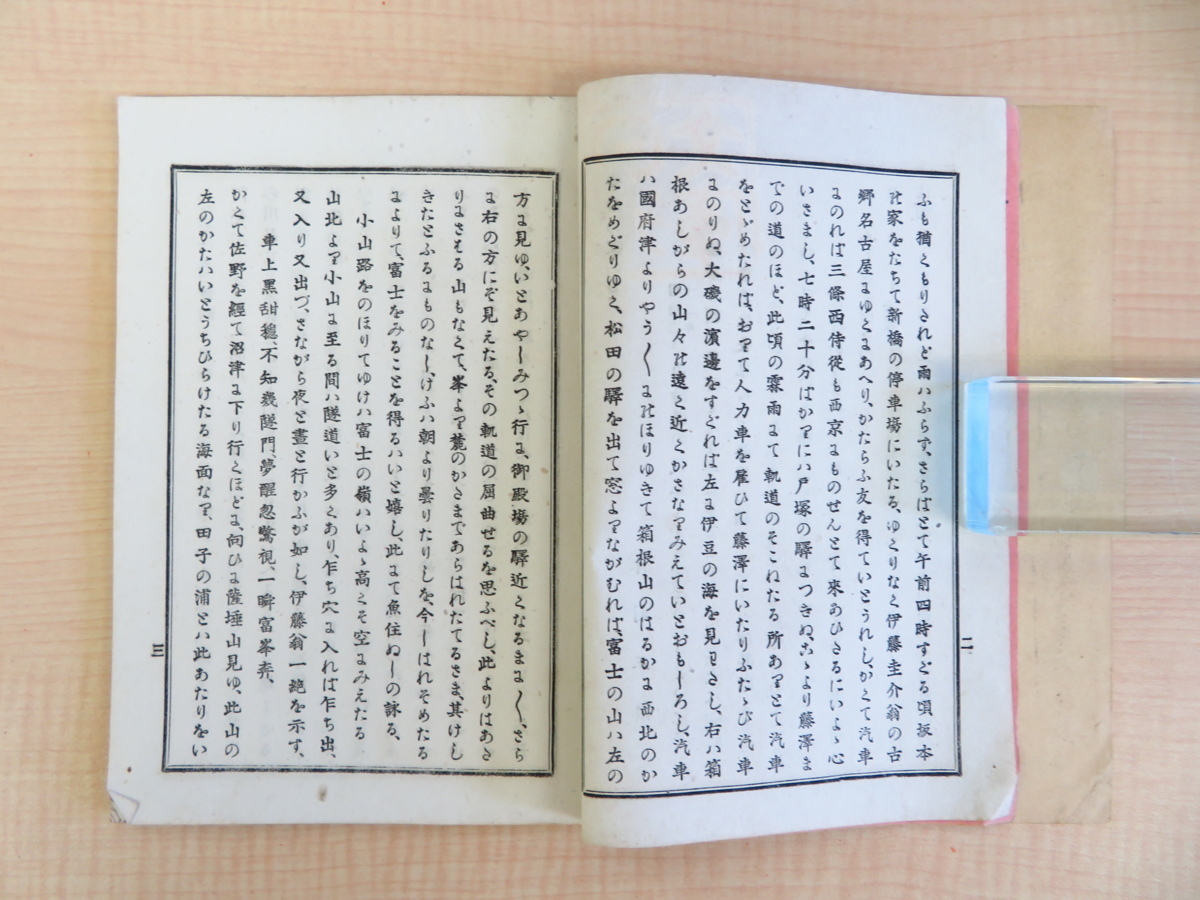 ふも猶くもりされど雨ハふらず、さらばとて午前四時すぐる頃坂本
の家をたちて新橋の停車場にいたる、ゆくりなく伊藤圭介翁の古
郷名古屋にゆくにあへり、かたらふ友を得ていとうれし、かくて汽車
にのれば三條西侍從も西京にものせんとて來あひさるにいよゝ心
いさまし、七時二十分ばかりにハ戸塚の驛につきぬ、こゝより藤澤ま
での道のほど、此頃の霖雨にて軌道のそこねたる所ありとて汽車
をとゞめたれば、おりて人力車を雇ひて藤澤にいたりふたゝび汽車
にのりぬ、大磯の濱邊をすぐれば左に伊豆の海を見わたし、右ハ箱
根あしがらの山々の遠く近くかさなりみえていとおもしろし、汽車
ハ國府津よりやう〳〵にのほりゆきて箱根山のはるかに西北のか
たをめぐりゆく、松田の驛を出て窓よりながむれば、富士の山ハ左の
二
方に見ゆ、いとあやしみつゝ行に、御殿場の驛近くなるまに〳〵、さら
に右の方にぞ見えたる、その軌道の屈曲せるを思ふべし、此よりはあた
りにさはる山もなくて、峯より麓のかたまであらはれたてるさま、其けし
きたとふるにものなし、けふハ朝より曇りたりしを、今しはれそめたる
によりて、富士をみることを得るハいと嬉し、此にて魚住ぬしの詠る、
小山路をのほりてゆけハ富士の嶺ハいよゝ高くそ空にみえたる
山北より小山に至る間ハ隧道いと多くあり、乍ち穴に入れば乍ち出、
又入り又出づ、さながら夜と晝と行かふが如し、伊藤翁一絶を示す、
車上黑甜穩不知幾隧門、夢醒忽驚視、一瞬富峯奔、
かくて佐野を經て沼津に下り行くほどに、向ひに薩埵山見ゆ、此山の
左のかたハいとうちひらけたる海面なり、田子の浦とハ此あたりをい
三